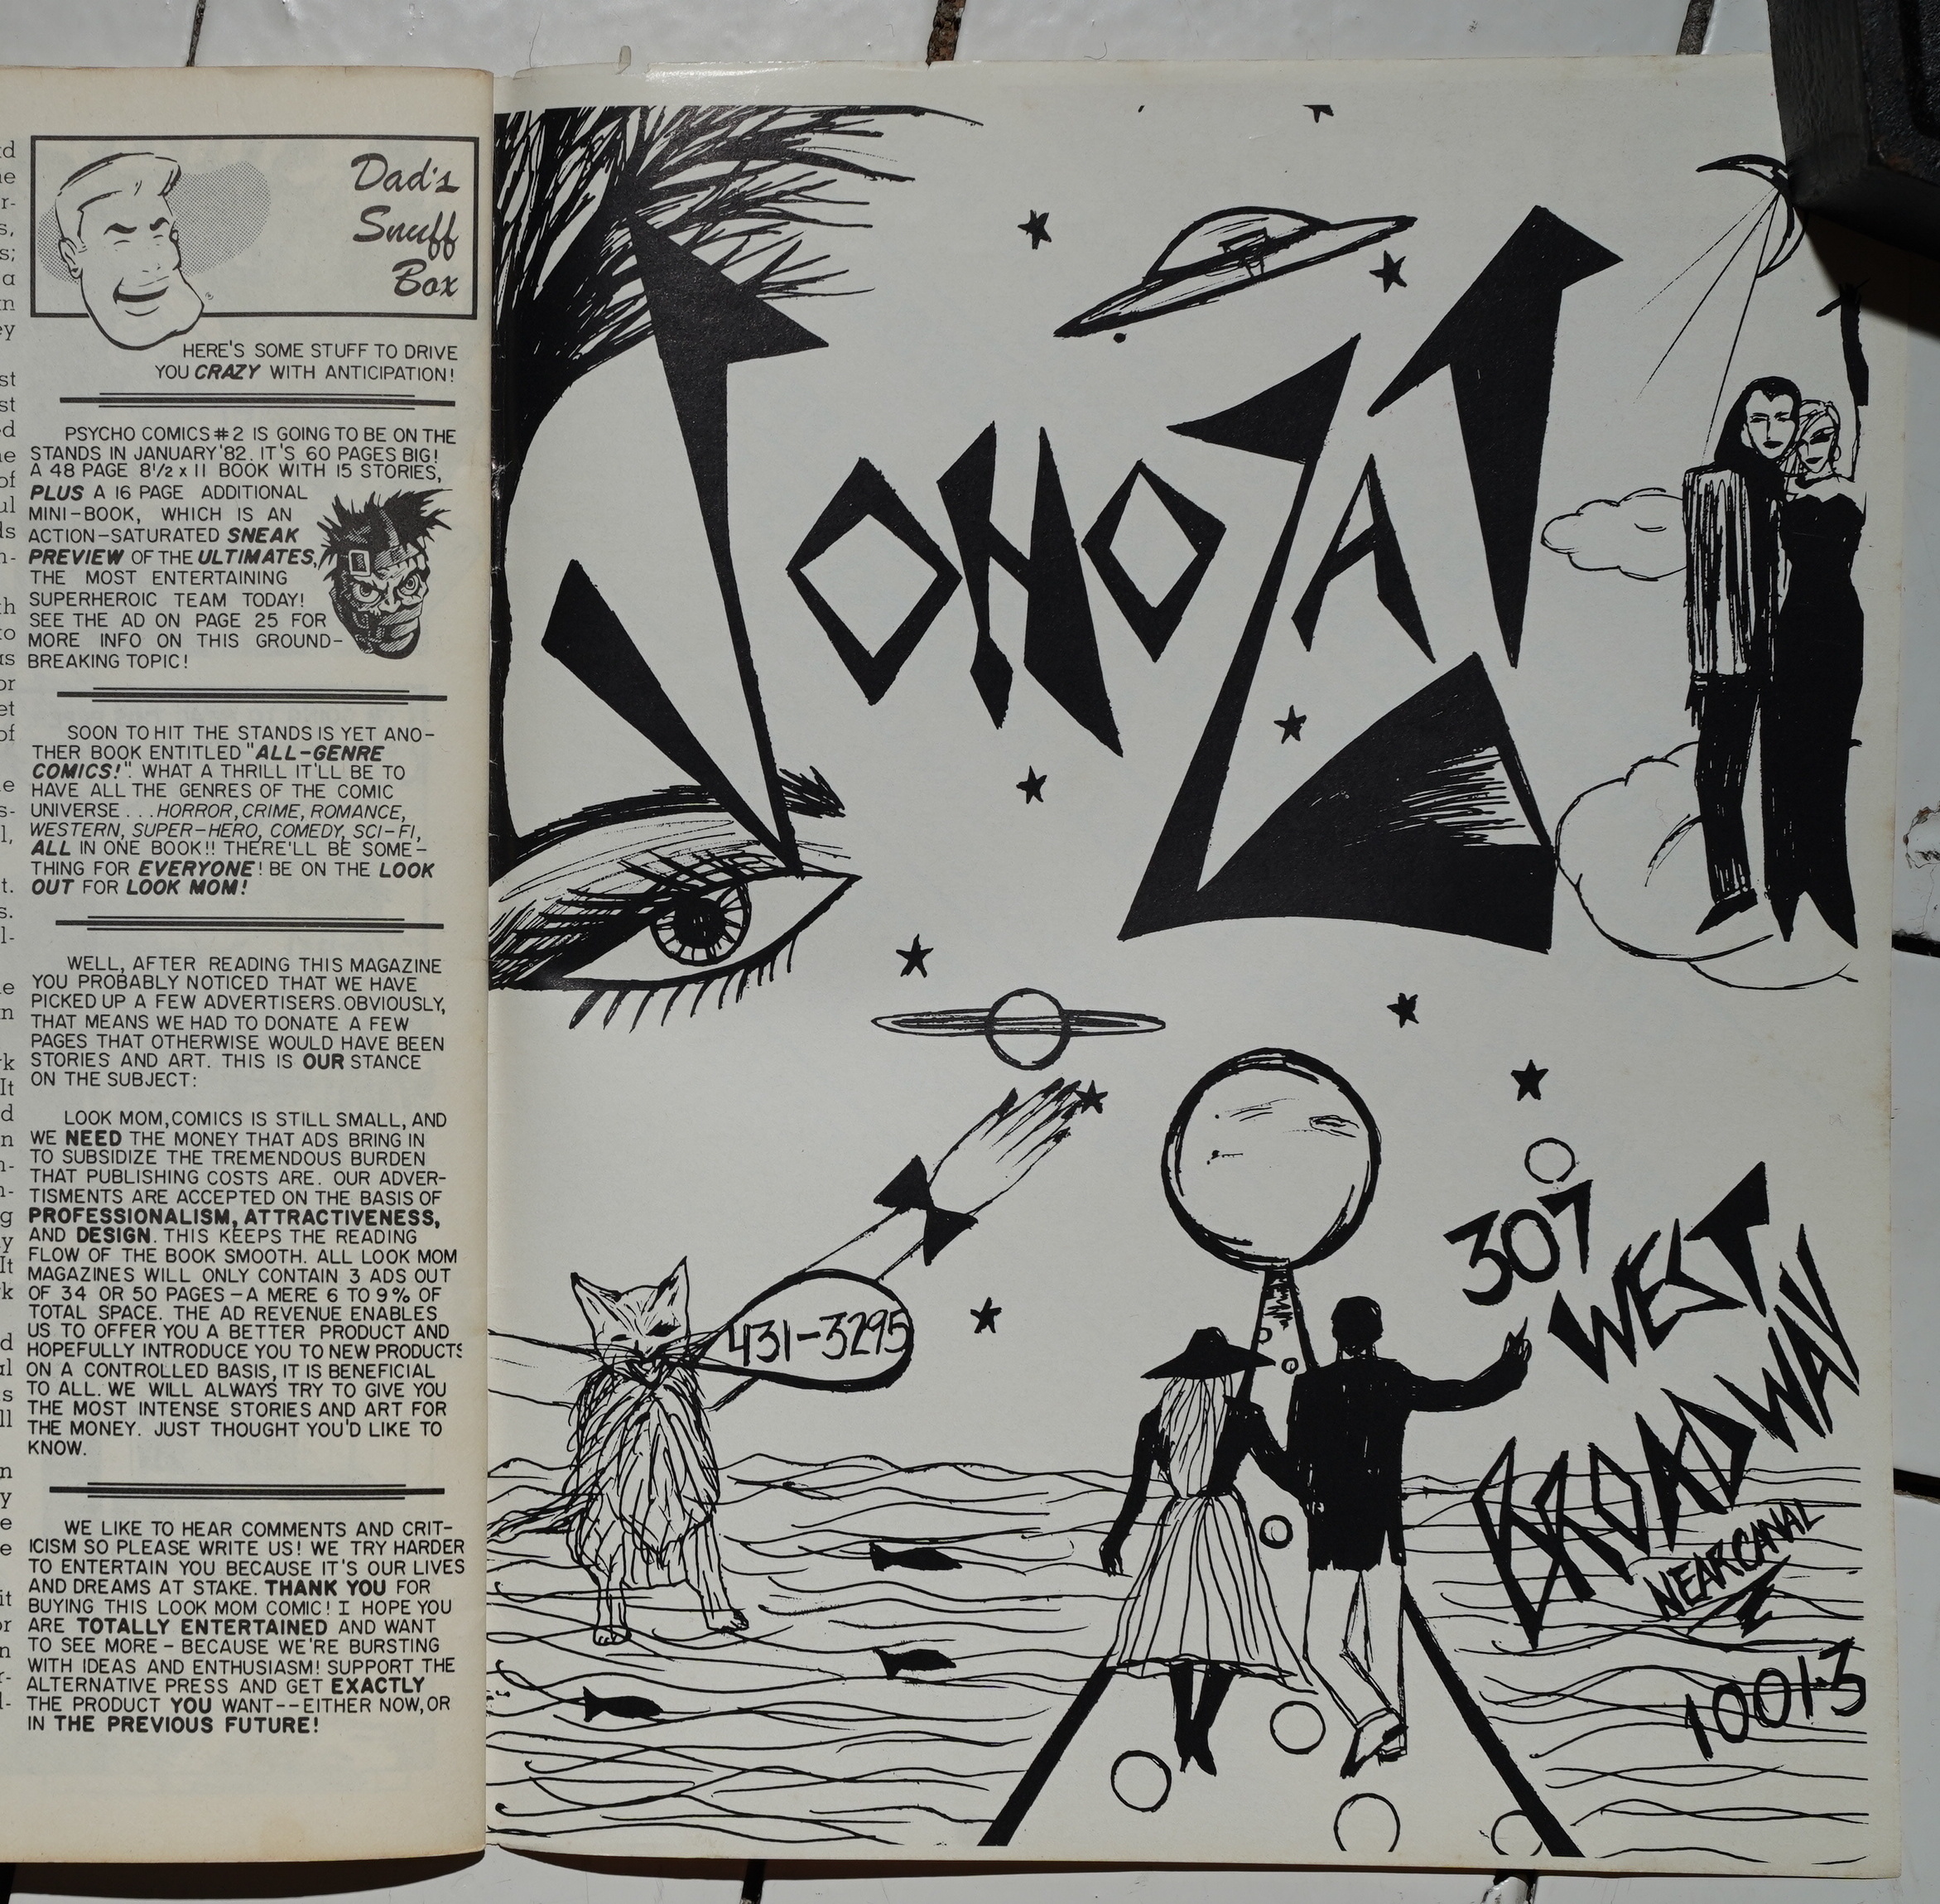 Dad's
Snuff
Box
HERE'S SOME STUFF TO DRIVE
YOU CRAZY WITH ANTICIPATION!
PSYCHO COMICS #2 IS GOING TO BE ON THE
STANDS IN JANUARY '82. IT'S 60 PAGES BIG!
A 48 PAGE 8 1/2 x 11 BOOK WITH 15 STORIES,
PLUS A 16 PAGE ADDITIONAL
MINI-BOOK, WHICH IS AN
ACTION-SATURATED SNEAK
PREVIEW OF THE ULTIMATES,
THE MOST ENTERTAINING
SUPERHEROIC TEAM TODAY!
SEE THE AD ON PAGE 25 FOR
MORE INFO ON THIS GROUND-
BREAKING TOPIC!
SOON TO HIT THE STANDS IS YET ANO-
THER BOOK ENTITLED "ALL-GENRE
COMICS!". WHAT A THRILL IT'LL BE TO
HAVE ALL THE GENRES OF THE COMIC
UNIVERSE...HORROR, CRIME, ROMANCE,
WESTERN, SUPER-HERO, COMEDY, SCI-FI,
ALL IN ONE BOOK!! THERE'LL BE SOME-
THING FOR EVERYONE! BE ON THE LOOK
OUT FOR LOOK MOM!
WELL, AFTER READING THIS MAGAZINE
YOU PROBABLY NOTICED THAT WE HAVE
PICKED UP A FEW ADVERTISERS. OBVIOUSLY,
THAT MEANS WE HAD TO DONATE A FEW
PAGES THAT OTHERWISE WOULD HAVE BEEN
STORIES AND ART. THIS IS OUR STANCE
ON THE SUBJECT:
LOOK MOM, COMICS IS STILL SMALL, AND
WE NEED THE MONEY THAT ADS BRING IN
TO SUBSIDIZE THE TREMENDOUS BURDEN
THAT PUBLISHING COSTS ARE. OUR ADVER-
TISMENTS ARE ACCEPTED ON THE BASIS OF
PROFESSIONALISM, ATTRACTIVENESS,
AND DESIGN. THIS KEEPS THE READING
FLOW OF THE BOOK SMOOTH. ALL LOOK MOM
MAGAZINES WILL ONLY CONTAIN 3 ADS OUT
OF 34 OR 50 PAGES - A MERE 6 TO 9% OF
TOTAL SPACE. THE AD REVENUE ENABLES
US TO OFFER YOU A BETTER PRODUCT AND
HOPEFULLY INTRODUCE YOU TO NEW PRODUCTS
ON A CONTROLLED BASIS, IT IS BENEFICIAL
TO ALL. WE WILL ALWAYS TRY TO GIVE YOU
THE MOST INTENSE STORIES AND ART FOR
THE MONEY. JUST THOUGHT YOU'D LIKE TO
KNOW.
WE LIKE TO HEAR COMMENTS AND CRIT-
ICISM SO PLEASE WRITE US! WE TRY HARDER
TO ENTERTAIN YOU BECAUSE IT'S OUR LIVES
AND DREAMS AT STAKE. THANK YOU FOR
BUYING THIS LOOK MOM COMIC! I HOPE YOU
ARE TOTALLY ENTERTAINED AND WANT
TO SEE MORE - BECAUSE WE'RE BURSTING
WITH IDEAS AND ENTHUSIASM! SUPPORT THE
ALTERNATIVE PRESS AND GET EXACTLY
THE PRODUCT YOU WANT--EITHER NOW, OR
IN THE PREVIOUS FUTURE!
JONOZAT
431-3295
307
WEST
BROADWAY
NEAR CANAL
10013